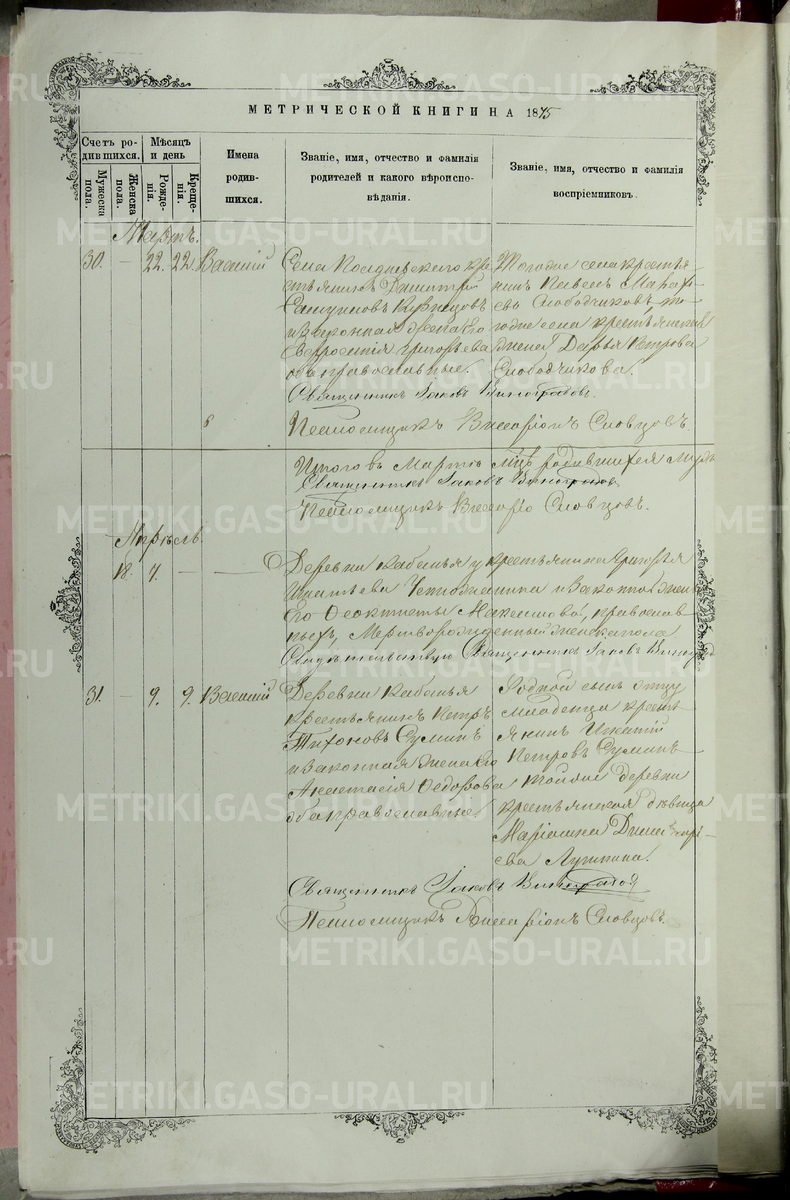 МЕТРИЧЕСКОЙ КНИГИ НА 1875
Счетъ родившихся.
Мужеска пола.
Женска пола.
Мѣсяцъ и день
Рожденія.
Крещенія.
Имена родившихся.
Званіе, имя, отчество и фамилія родителей и какого вѣроисповѣданія.
Званіе, имя, отчество и фамилія воспріемниковъ.
Мартъ.
30. — 22. 22. Василий
Села
крестьянинъ Димитрій
Кузнецовъ
и законная жена его
Евфросинія Григорьева
оба православные.
Тогоже села крестьянинъ Павелъ
Слободчиковъ, тогоже села крестьянская
жена Дарья Петрова
Слободчикова.
Священникъ Іаковъ Виноградовъ.
Псаломщикъ Виссаріонъ Словцовъ.
Итого въ Мартѣ м-цѣ родившихся муж
Священникъ Іаковъ Виноградовъ
Псаломщикъ Словцовъ.
Апрѣль
18. 7. — —
Деревни Кабанья у крестьянина Григорья
и законной жены
его Максимовой, православныхъ, Мертворожденный женска пола
Священникъ Іаковъ
31. — 9. 9. Василий
Деревни Кабанья
крестьянинъ Петръ
Тихоновъ Суминъ
и законная жена его
Анастасія Ѳедорова
оба православные
Родной сынъ отцу
младенца крестьянинъ Игнатій
Петровъ Суминъ
и той же деревни
крестьянская дѣвица
Маріамна
Священникъ Іаковъ Виноградовъ
Псаломщикъ Виссаріонъ Словцовъ.
METRIKI.GASO-URAL.RU